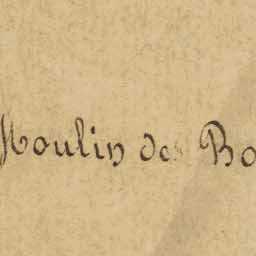 Moulin de Bo